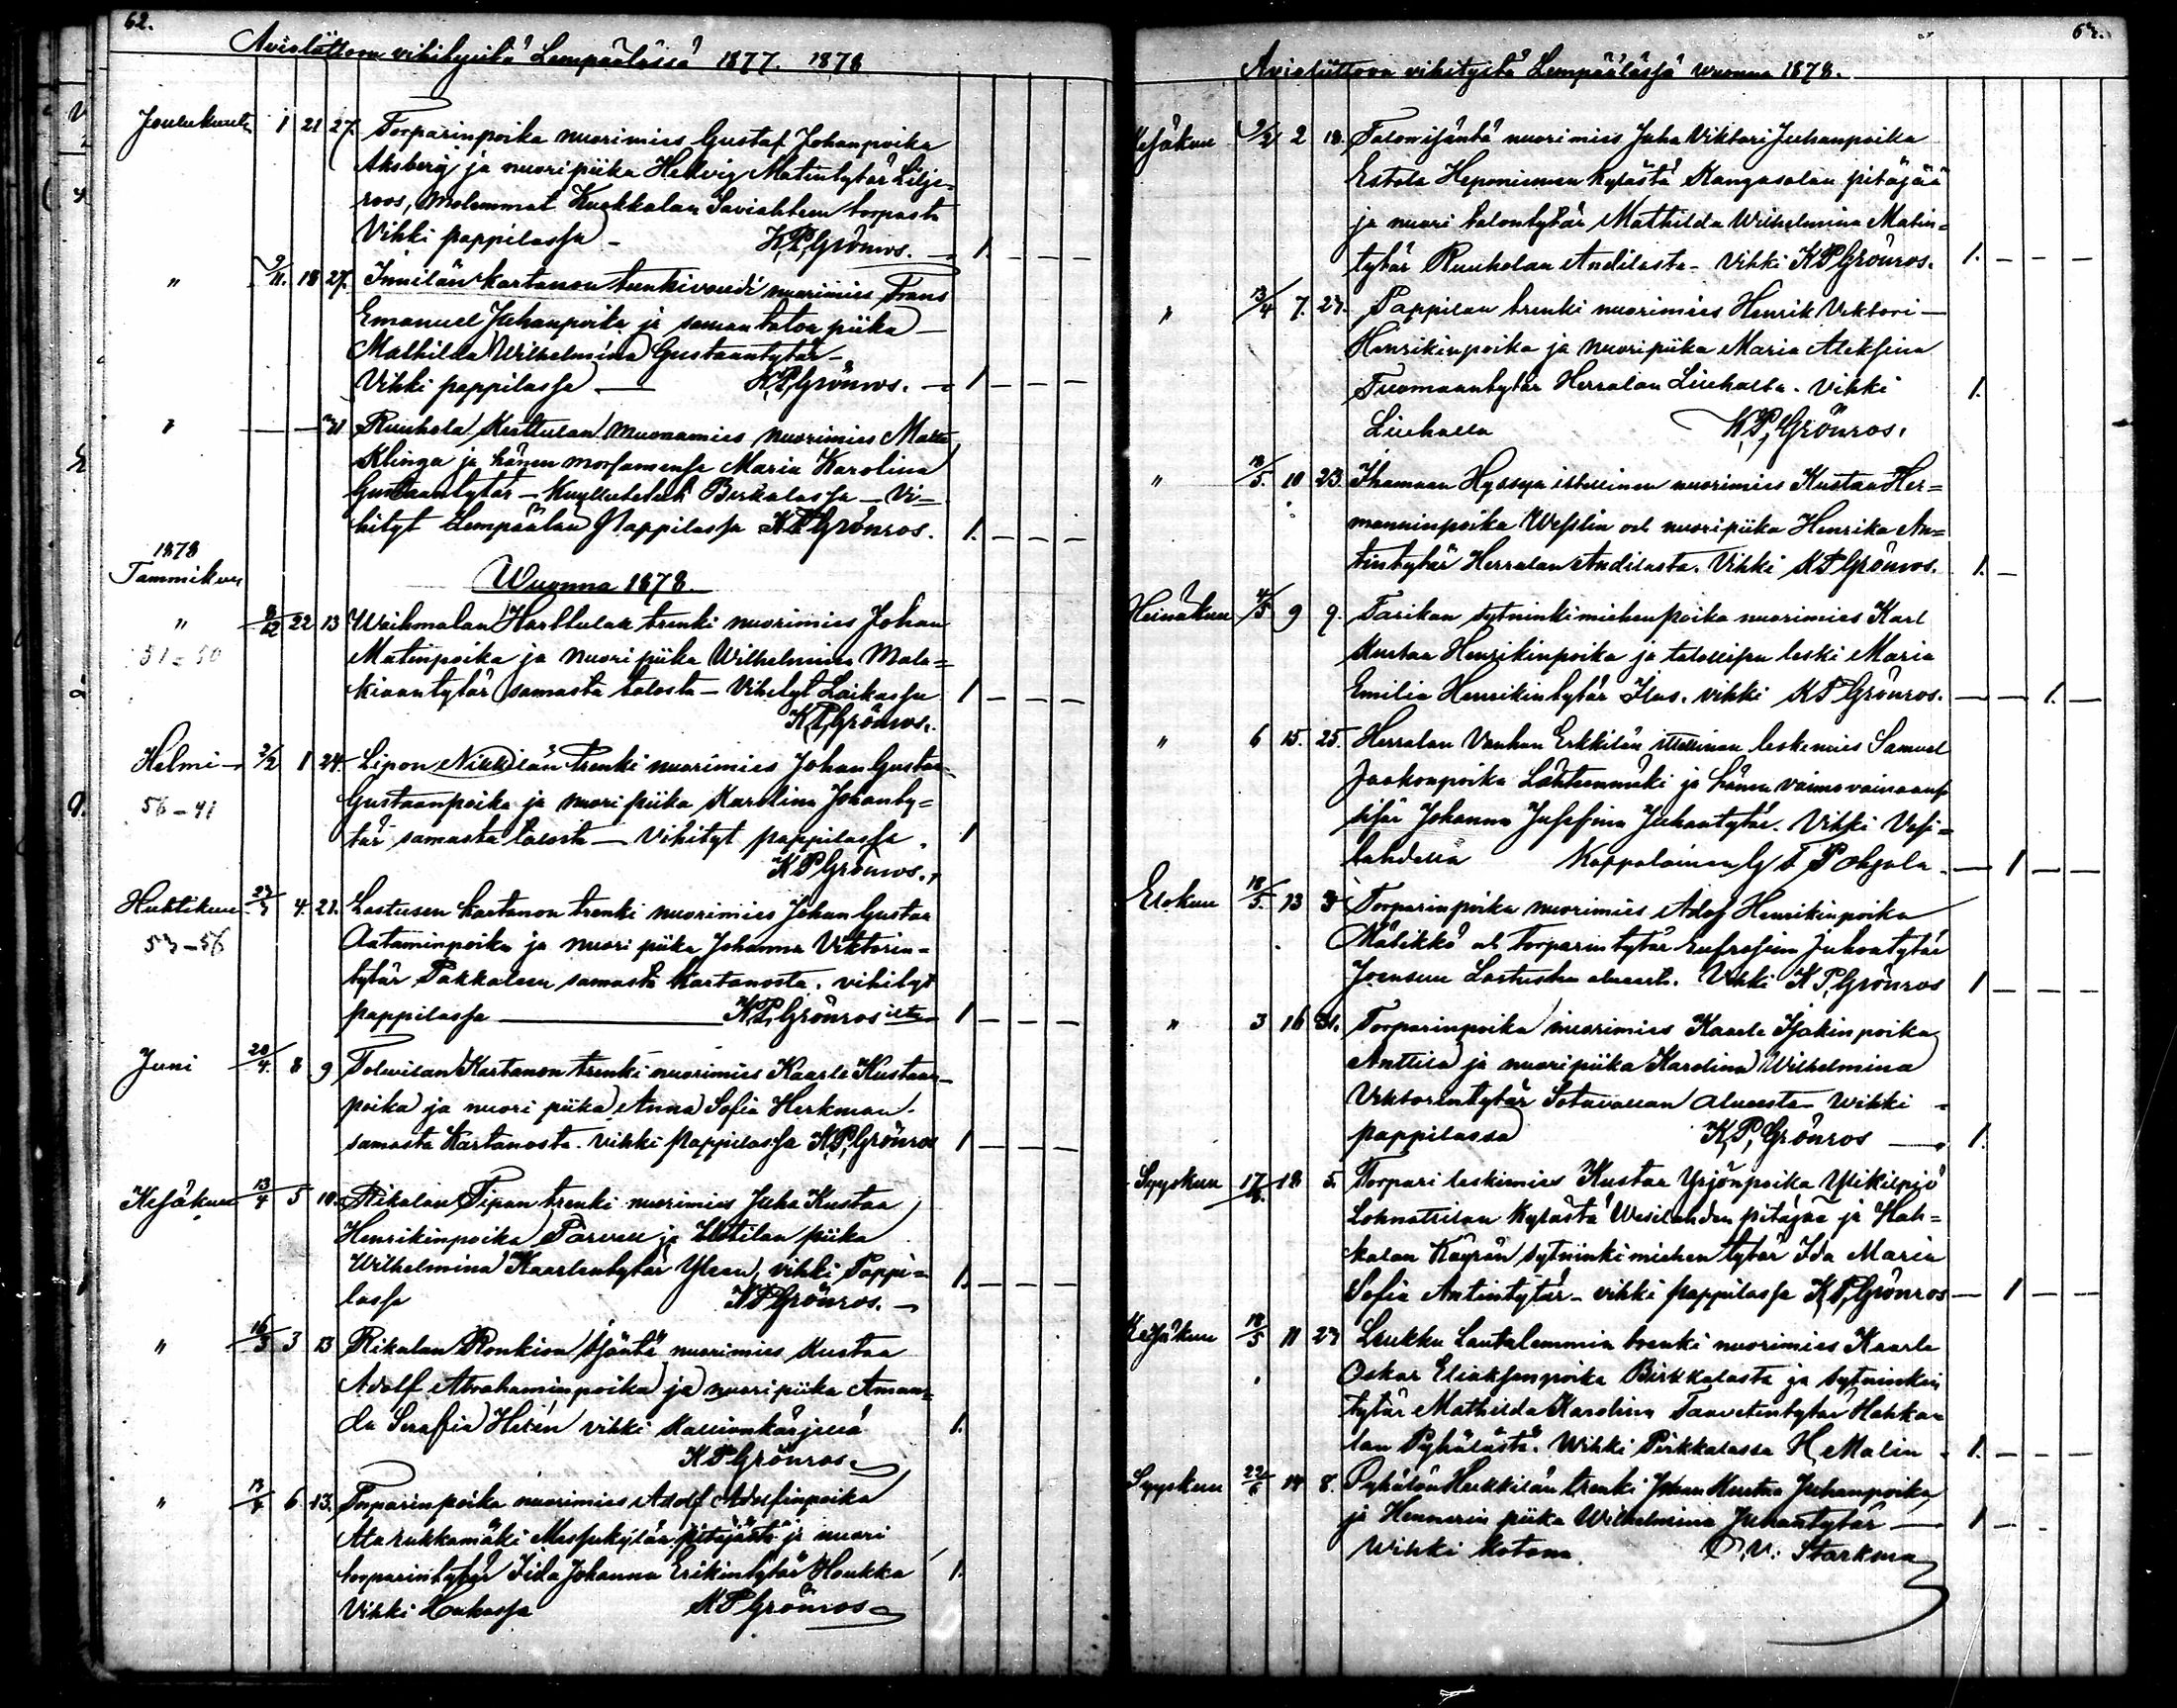 62.
Avioliittoon vihityitä Lempäälässä 1877. 1878
Joulukuuta 1 21 27. Torparinpoika nuorimies Gustaf Johanpoika
Aksberg ja nuoripiika Hedvig Matintytär Lilje=
roos, molemmat Kuokkalan Saviahteen torpasta
Vihki pappilassa - K,P,Grönros. — 1. — — —
" 9/11. 18 27. Innilän kartanon trenkivouti nuorimies Frans
Emanuel Juhanpoika ja saman talon piika —
Mathilda Wilhelmina Gustaantytär —
Vihki pappilassa — K,P,Grönros. — 1 — — —
" — — 31 Ruuhola Krattulan muonamies nuorimies Matti
Klinga ja hänen morsiamensa Maria Karolina
Gustaantytär — Kuulutetut Birkalassa — Vi=
hityt Lempäälän Pappilassa K P Grönros. 1. — — —
1878
Tammikuu
Wuonna 1878.
" 8/12 22 13 Waihmalan Harttulan trenki nuorimies Johan
51=50 Matinpoika ja nuori piika Wilhelmina Mala=
kiaantytär samasta talosta — Vihityt Laikassa 1 — — —
K,P,Grönros.
Helmi — 2/2 1 24. Lipon Nikkilän trenki nuorimies Johan Gustaa
56-41 Gustaanpoika ja nuori piika Karolina Johanty=
tär samasta talosta — Vihityt pappilassa. 1
K P Grönros.
Huhtikuu 4. 21. Lastusen kartanon trenki nuorimies Johan Gustaa
53-56 Aataminpoika ja nuori piika Johanna Viktorin=
tytär Pakkalen samasta kartanosta. vihityt
pappilassa — K,P,Grönros 1 — —
Juni 20/4. 8 9 Tolvilan Kartanon trenki nuorimies Kaarle Kustaan
poika ja nuori piika Anna Sofia Herkman.
samasta kartanosta. vihki pappilassa K,P,Grönros 1 — — —
Kesäkuu 13/4 5 10. Rikalan Tipan trenki nuorimies Juha Kustaa
Henrikinpoika Parven ja Uotilan piika
Wilhelmina Kaarlentytär Yleen, vihki Pappi=
lassa K P Grönros. — 1. — — —
" 16/3 3 13 Rikalan Ronkion isäntä nuorimies Kustaa
Adolf Abrahaminpoika ja nuoripiika Aman=
da Serafia Helén vihki Kallionkärjellä 1.
K P Grönros
" 13/4 6. 13. Torparinpoika nuorimies Adolf Adolfinpoika
Alarukkamäki Messukylän pitäjästä ja nuori
torparintytär Iida Johanna Erikintytär Houkka 1.
Vihki K P Grönros
63.
Avioliittoon vihityitä Lempäälässä wuonna 1878.
Kesäkuu 9/2 2 18. Talonisäntä nuorimies Juha Viktori Juhanpoika
Eskola Heponiemen kylästä Kangasalan pitäjää
ja nuori talontytär Mathilda Wilhelmina Matin=
tytär Ruuholan Andilasta - Vihki K P Grönros. 1. — — —
" 13/4 7. 27. Pappilan trenki nuorimies Henrik Viktori —
Henrikinpoika ja nuoripiika Maria Aleksina
Tuomaantytär Herralan Liuhalta. Vihki 1.
Liuhalla K,P, Grönros.
" 18/5. 10 23. Hyssyn nuorimies Kustaa Her=
manninpoika Weslin ock nuoripiika Henrika An=
tintytär Herralan Andilasta. Vihki K P Grönros. 1. —
Heinäkuu 4/5 9 9. Tarikan sytninkimiehenpoika nuorimies Karl
Kustaa Henrikinpoika ja talollisen leski Maria
Emilia Henrikintytär Ilus. vihki K P Grönros. — — 1. —
" 6 15. 25. Herralan Vanhan Erkkilän ittellinen leskimies Samuel
Jaakonpoika Lähteenmäki ja hänen vaimovainaans
sisär Johanna Josefina Juhantytär. Vihki Vesi=
lahdella Kappalainen G F Pohjala. — 1 — —
Elokuu 18/5. 13 3 Torparinpoika nuorimies Adof Henrikinpoika
Mätikkö ock torparintytär Eufrosina Juhontytär
Joensuu Lastusten alueesta. Vihki K P,Grönros 1 — — —
" 3 16 31. Torparinpoika nuorimies Kaarle Isakinpoika
Anttila ja nuoripiika Karolina Wilhelmina
Viktorintytär Sotavallan alueesta Wihki —
pappilassa K,P, Grönros — 1.
Syyskuu 17/8. 18 5. Torpari leskimies Kustaa Yrjönpoika Ylikilpiö
kylästä Wesilahden pitäjää ja Hah=
kalan Käyrän sytninkimiehen tytär Ida Maria
Sofia Antintytär - vihki pappilassa K,P,Grönros — 1 — —
Kesäkuu 18/5 11 27 Leukku Lautalemmin trenki nuorimies Kaarle
Oskar Eliaksenpoika Birkkalasta ja sytninkin
tytär Mathilda Karolina Taavetintytär Hahka=
lan Pyhälästä. Wihki Pirkkalassa H Malin — 1. — — —
Syyskuu 22/6 14 8. Pyhälön Heikkilän trenki Johan Kustaa Juhanpoika
ja Hennerin piika Wilhelmina Juhantytär — 1 — —
Wihki kotona. Starkman